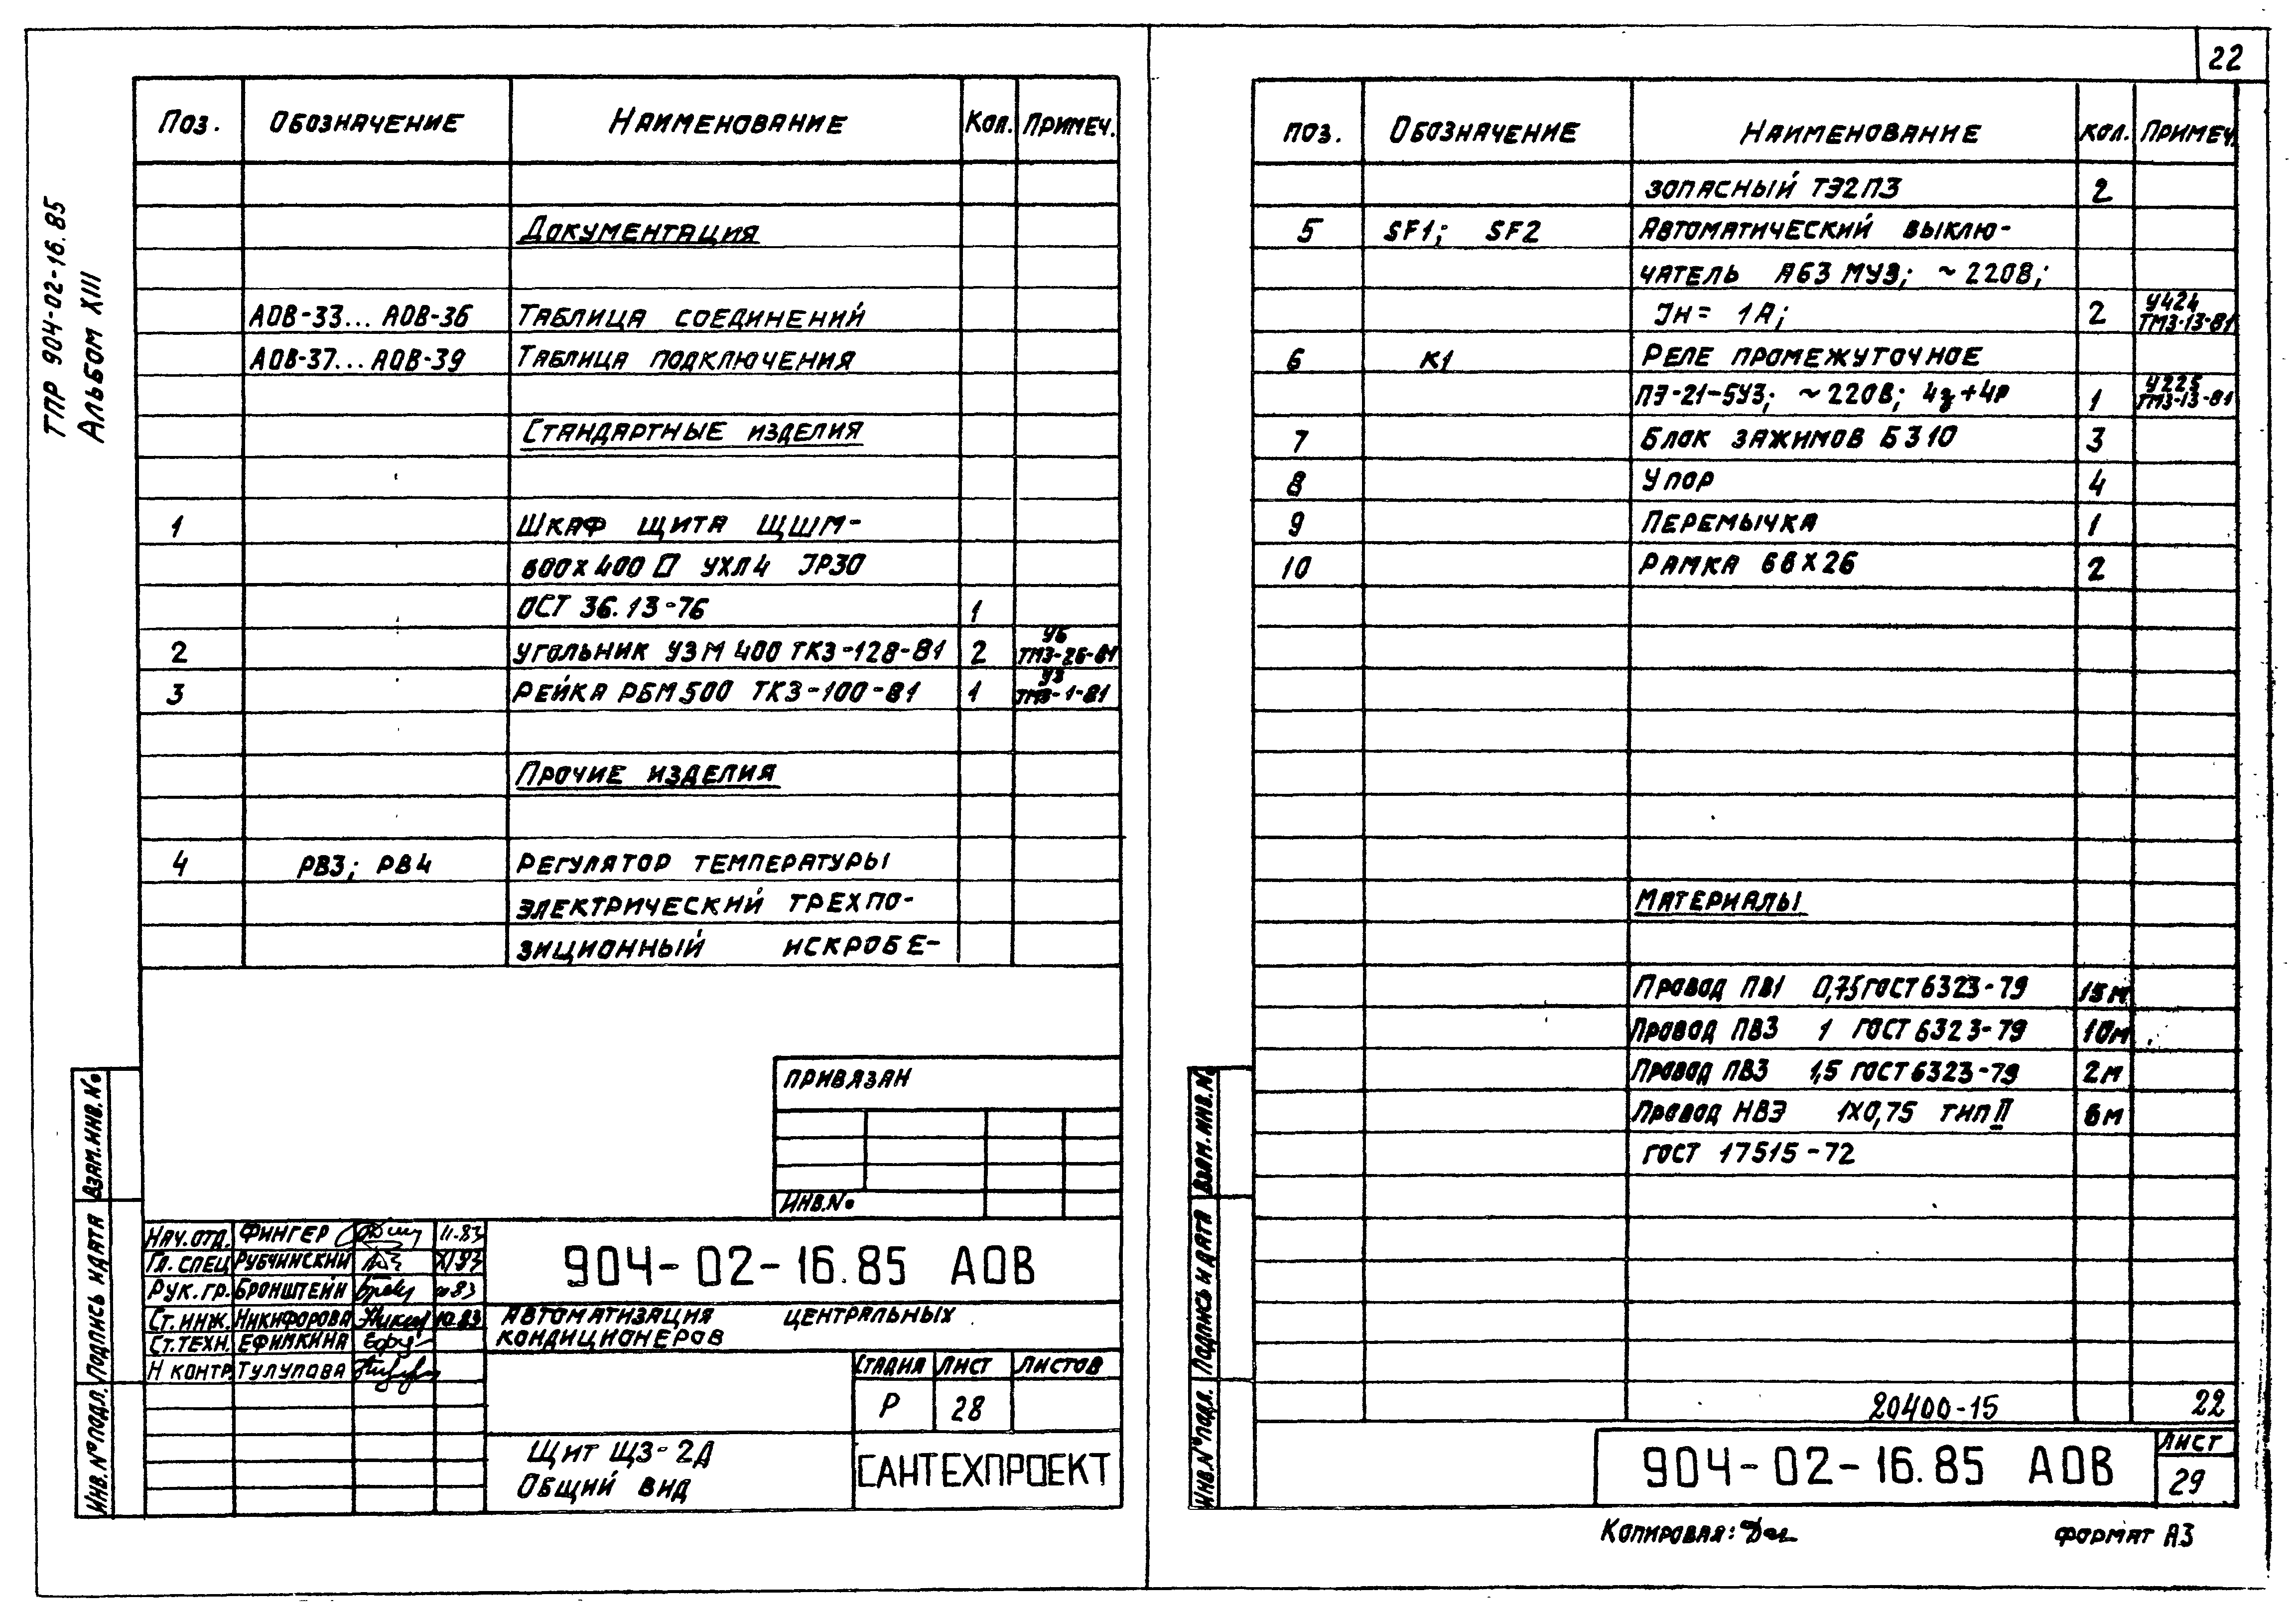 22
ТПР 904-02-16.85
Альбом XIII
Поз. Обозначение Наименование Кол. Примеч.
Документация
АОВ-33... АОВ-36 Таблица соединений
АОВ-37... АОВ-39 Таблица подключения
Стандартные изделия
1 Шкаф щита ЩШМ-
600х400 П УХЛ4 IP30
ОСТ 36.13-76 1
2 Угольник УЗМ 400 ТКЗ-128-81 2 У6 ТМЗ-26-81
3 Рейка РБМ500 ТКЗ-100-81 1 У3 ТМ3-1-81
Прочие изделия
4 РВ3; РВ4 Регулятор температуры
электрический трехпо-
зиционный искробе-
Привязан
Инв.№
Нач.отд. Фингер 11.83
Гл. спец Рубчинский XI 83
Рук.гр. Бронштейн
Ст.инж. Никифорова 10.83
Ст.техн. Ефимкина
Н контр. Тулупова
904-02-16.85 АОВ
Автоматизация центральных
кондиционеров
Стадия Лист Листов
Р 28
Щит ЩЗ-2Д
Общий вид
САНТЕХПРОЕКТ
Инв.№подл. Подпись и дата Взам.инв.№
Поз. Обозначение Наименование Кол. Примеч.
запасный ТЭ2П3 2
5 SF1; SF2 Автоматический выклю-
чатель А63 МУЗ; ~220В;
Iн= 1А; 2 У424 ТМ3-13-81
6 К1 Реле промежуточное
ПЭ-21-5У3; ~220В; 4з+4р 1 У225 ТМ3-13-81
7 Блок зажимов БЗ10 3
8 Упор 4
9 Перемычка 1
10 Рамка 66х26 2
Материалы
Провод ПВ1 0,75 ГОСТ 6323-79 15м
Провод ПВ3 1 ГОСТ 6323-79 10м
Провод ПВ3 1,5 ГОСТ 6323-79 2м
Провод НВЭ 1х0,75 тип II 6м
ГОСТ 17515-72
20400-15 22
904-02-16.85 АОВ
Лист
29
Инв.№подл. Подпись и дата Взам.инв.№
Копировал:
Формат А3